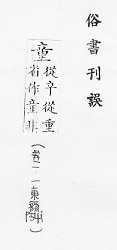 俗書刊誤
童
從辛從重
省作童非
（卷一．一東韻）